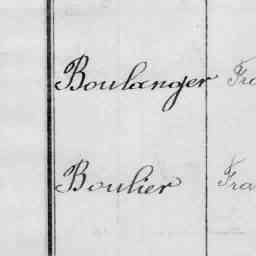 Boulanger Fra
Boulier Fra